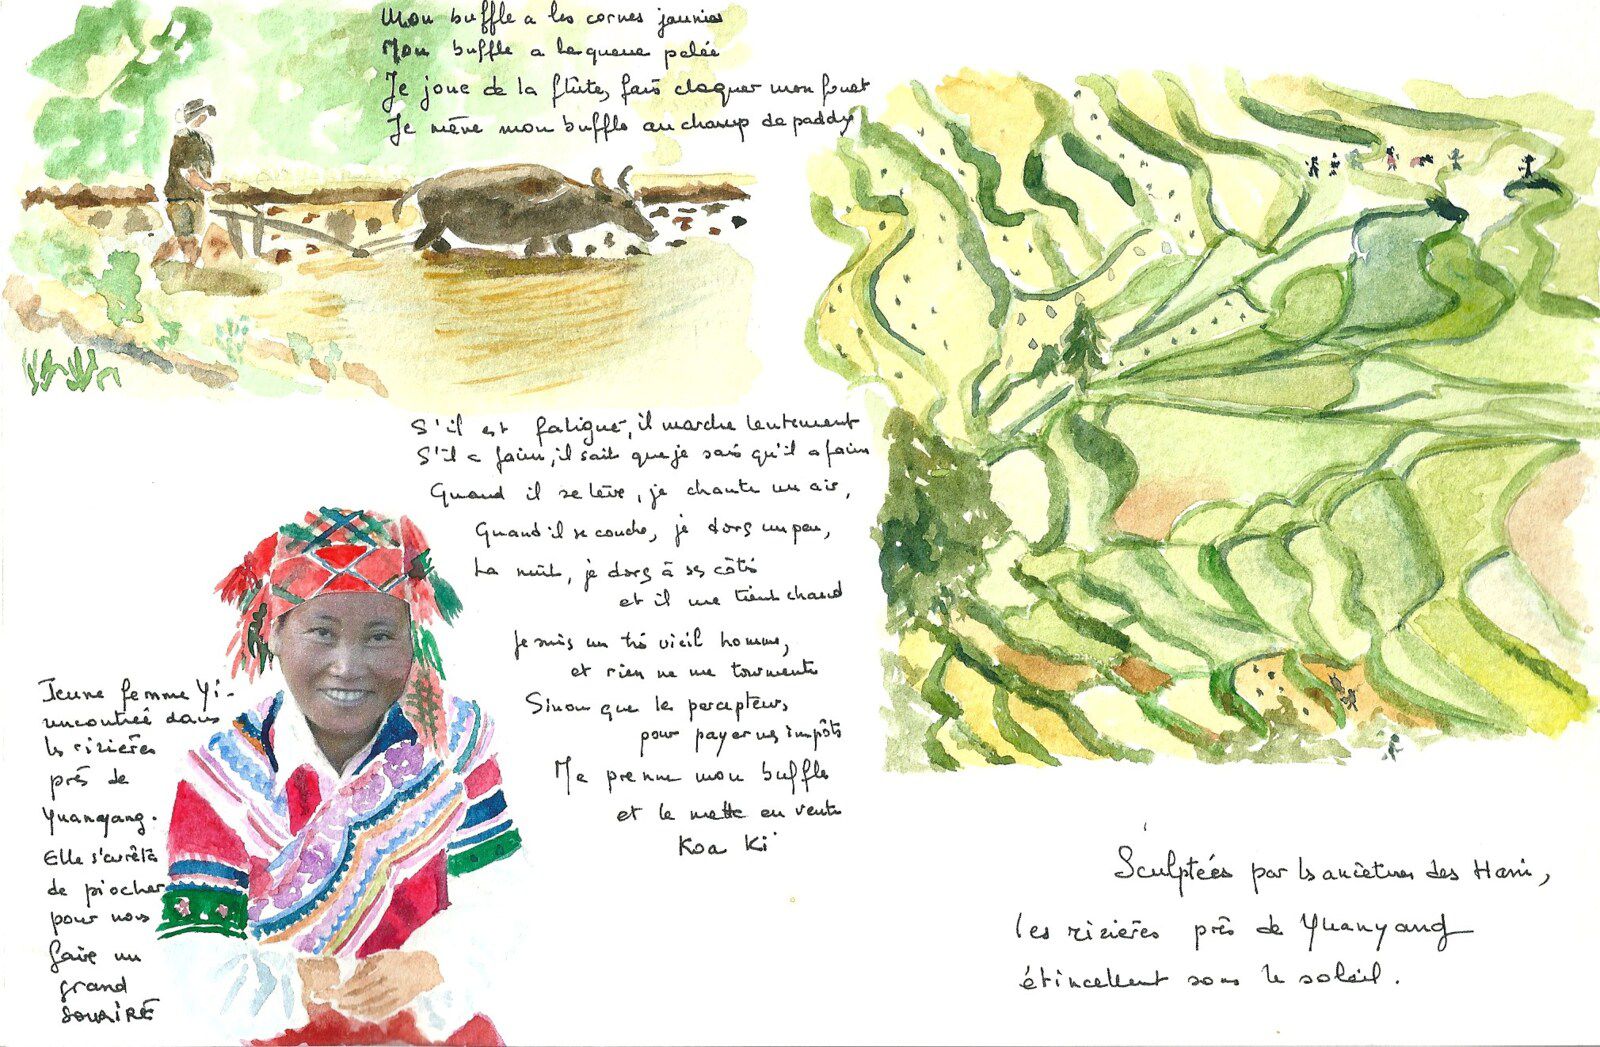 Mon buffle a les cornes jaunies
Mon buffle a la queue pelée
Je joue de la flûte, fais claquer mon fouet
Je mène mon buffle au champ de paddy
S'il est fatigué, il marche lentement
S'il a faim, il sait que je sais qu'il a faim
Quand il se lève, je chante un air,
Quand il se couche, je dors un peu,
La nuit, je dors à ses côtés
et il me tient chaud
Je suis un très vieil homme,
et rien ne me tourmente
Sinon que les percepteurs,
pour payer mes impôts
Me prenne mon buffle
et le mette en vente
Koa Ki
Jeune femme Yi-
rencontrée dans
les rizières
près de
Yuanyang.
Elle s'arrêta
de piocher
pour nous
faire un
grand
SOURIRE
Sculptées par les ancêtres des Hani,
les rizières près de Yuanyang
étincellent sous le soleil.